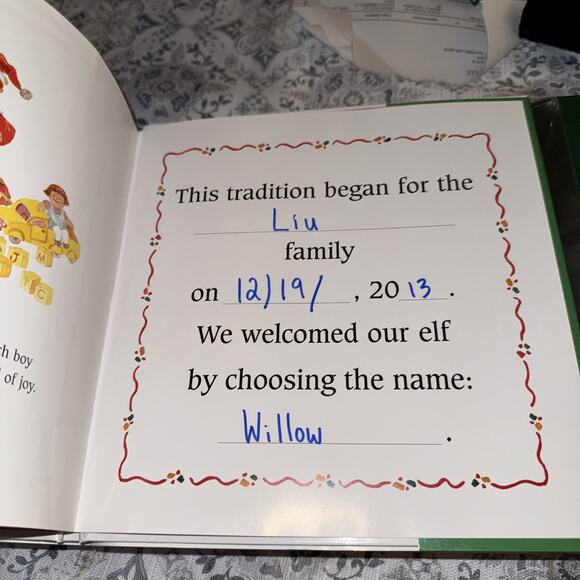 This tradition began for the
Liu
family
on 12/19/, 2013.
We welcomed our elf
by choosing the name:
Willow.
ch boy
of joy.